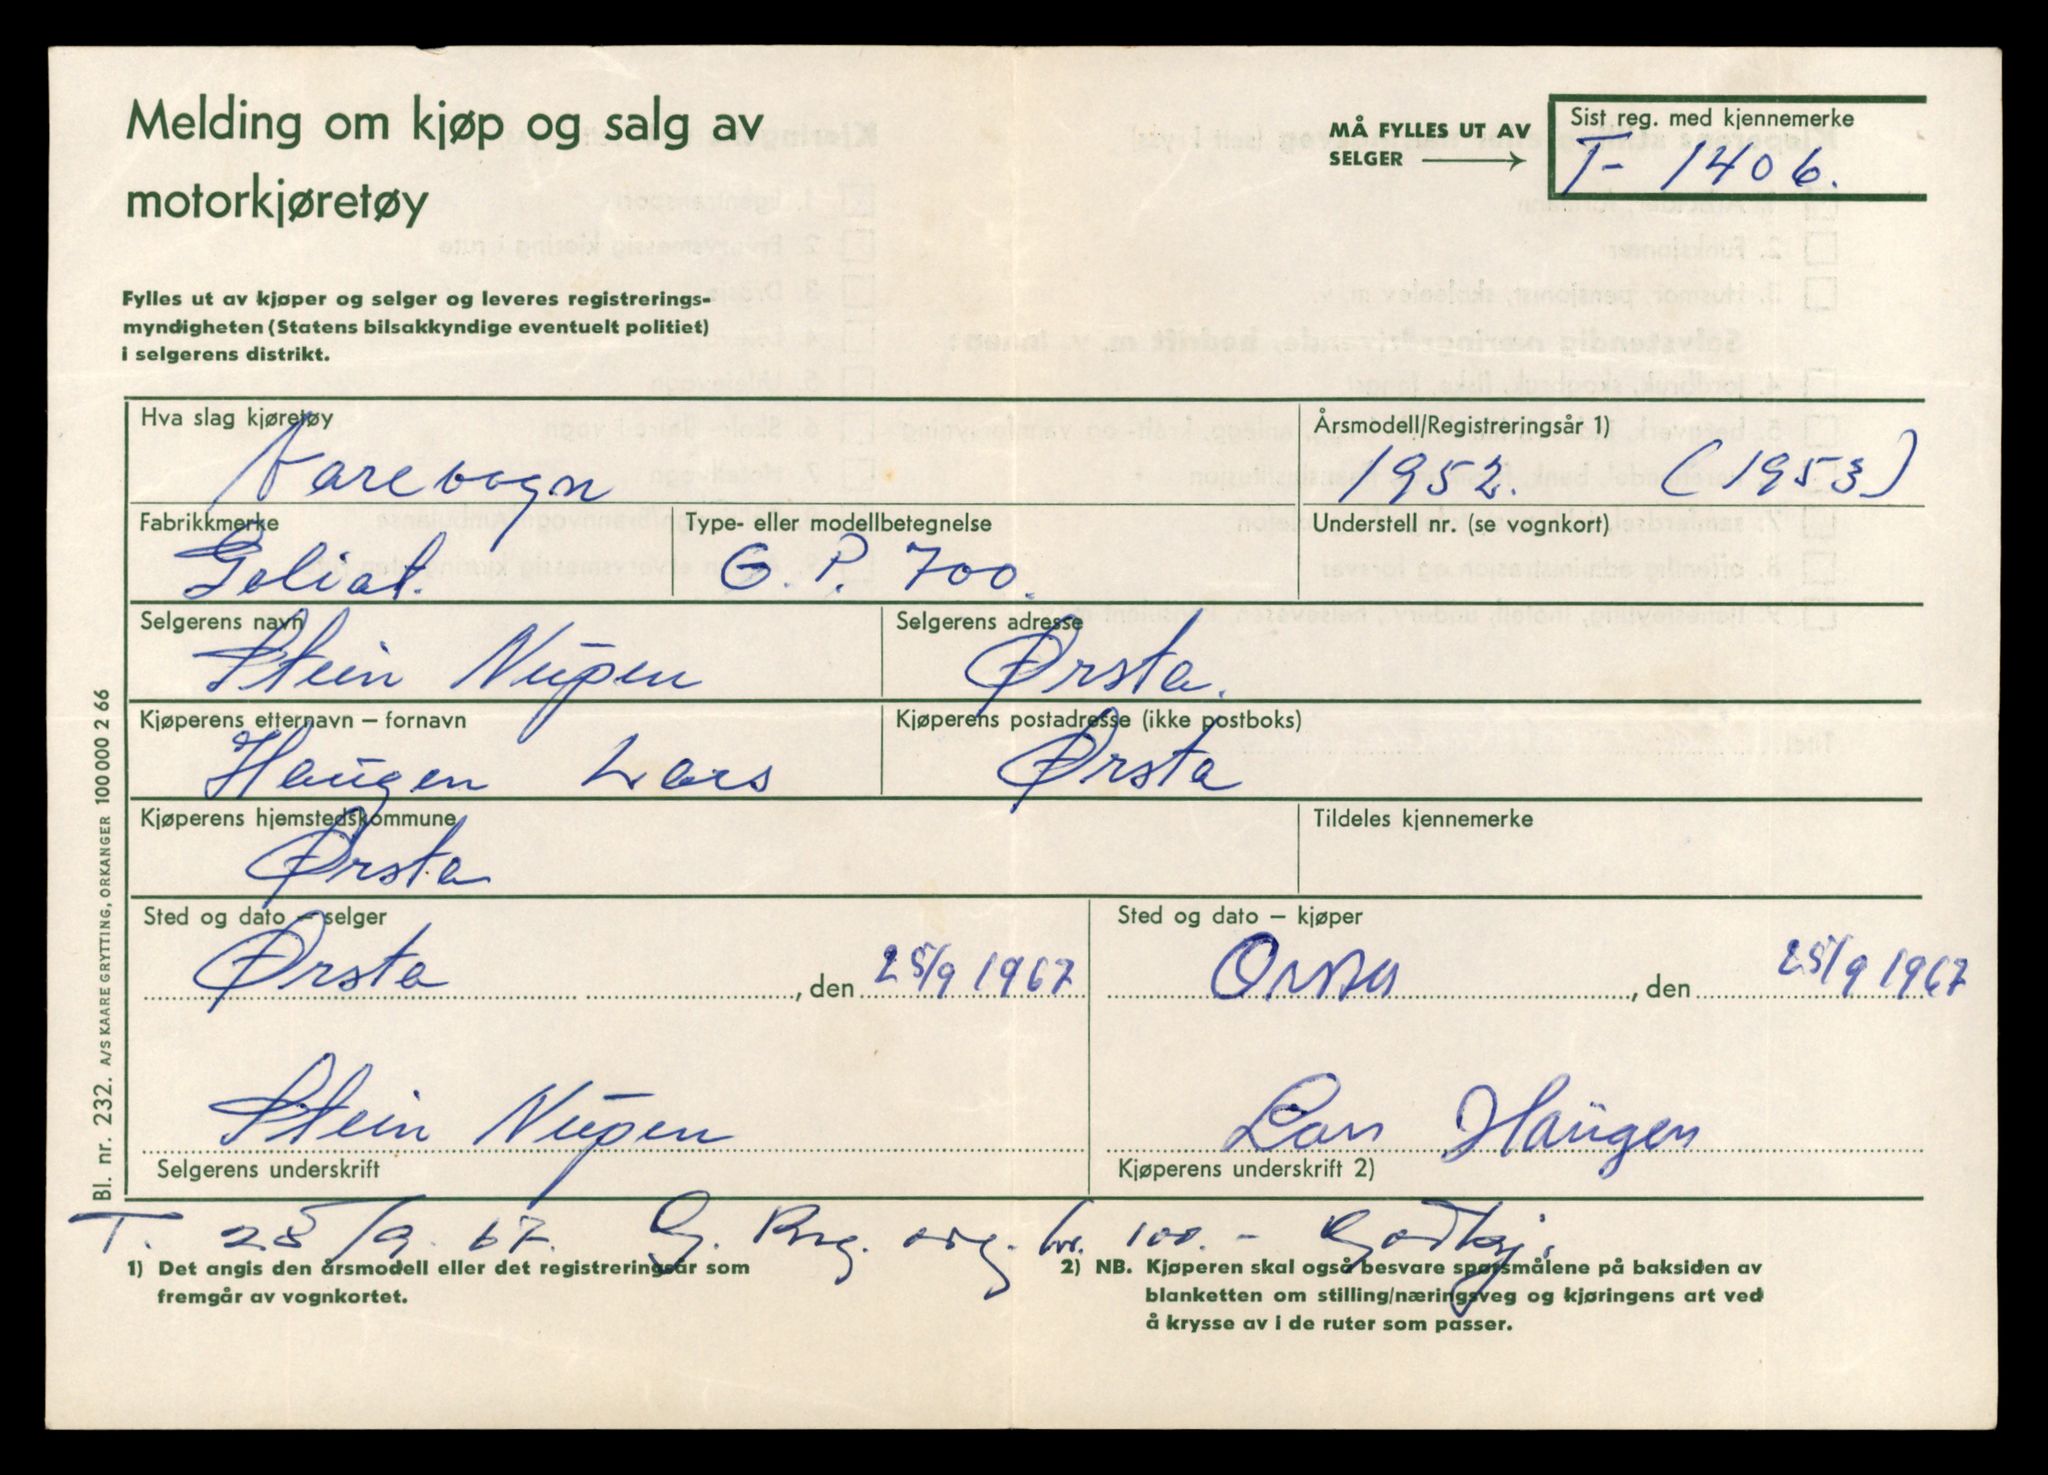 Melding om kjøp og salg av
motorkjøretøy
MÅ FYLLES UT AV
SELGER
Sist reg. med kjennemerke
T- 1406.
Fylles ut av kjøper og selger og leveres registrerings-
myndigheten (Statens bilsakkyndige eventuelt politiet)
i selgerens distrikt.
Hva slag kjøretøy
Varevogn
Årsmodell/Registreringsår 1)
1952. (1953)
Fabrikkmerke
Goliat.
Type- eller modellbetegnelse
G. P. 700.
Understell nr. (se vognkort)
Selgerens navn
Stein Nupen
Selgerens adresse
Ørsta.
Kjøperens etternavn – fornavn
Haugen Lars
Kjøperens postadresse (ikke postboks)
Ørsta
Kjøperens hjemstedskommune
Ørsta
Tildeles kjennemerke
Sted og dato – selger
Ørsta, den 25/9 1967
Sted og dato – kjøper
Ørsta, den 25/9 1967
Stein Nupen
Selgerens underskrift
Lars Haugen
Kjøperens underskrift 2)
T. 25/9. 67. Reg. avg. kr. 100. - Godkj.
1) Det angis den årsmodell eller det registreringsår som
fremgår av vognkortet.
2) NB. Kjøperen skal også besvare spørsmålene på baksiden av
blanketten om stilling/næringsveg og kjøringens art ved
å krysse av i de ruter som passer.
Bl. nr. 232. A/S KAARE GRYTTING, ORKANGER 100 000 2 66